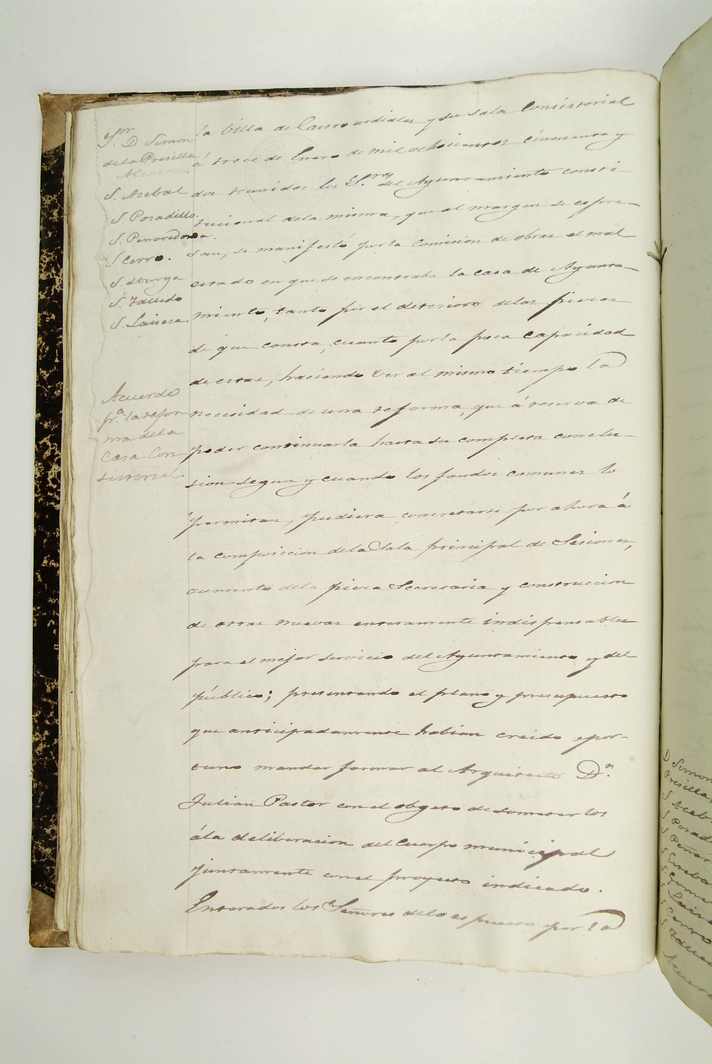 Sor. D. Simon
de la Presilla
Alcalde.
S. Acebal
S. Posadillo.
S. Peñaredonda.
S. Cerro.
S. Yturga
S. Talledo
S. Lainera
Acuerdo
pa. la refor
ma de la
Casa Con
sistorial.
la Villa de Castrourdiales y su Sala Consistorial
á trece de Enero de mil ochocientos cincuenta y
dos reunidos los Sres. del Ayuntamiento consti-
tucional de la misma, que al margen se espre-
san, se manifestó por la comision de obras el mal
estado en que se encontraba la casa de Ayunta-
miento, tanto por el deterioro de las piezas
de que consta, cuanto por la poca capacidad
de estas, haciendo ver al mismo tiempo la
necesidad de una reforma, que á reserva de
poder continuarla hasta su completa conclu-
sion segun y cuando los fondos comunes lo
permitan, pudiera concretarse por ahora á
la composicion de la Sala principal de Sesiones,
aumento de la pieza Secretaria y construccion
de otras nuevas enteramente indispensables
para el mejor servicio del Ayuntamiento y del
público; presentando el plano y presupuesto
que anticipadamente habian creido opor-
tuno mandar formar al Arquitecto Dn.
Julian Pastor con el objeto de someterlos
á la deliberacion del Cuerpo municipal
juntamente con el proyecto indicado.
Enterados los Señores de lo espuesto por la
D. Simon
Presilla
S. Aceb
S. Posad
S. Peñar
S. Laine
S. Cerro
S. Talle
Acuerd